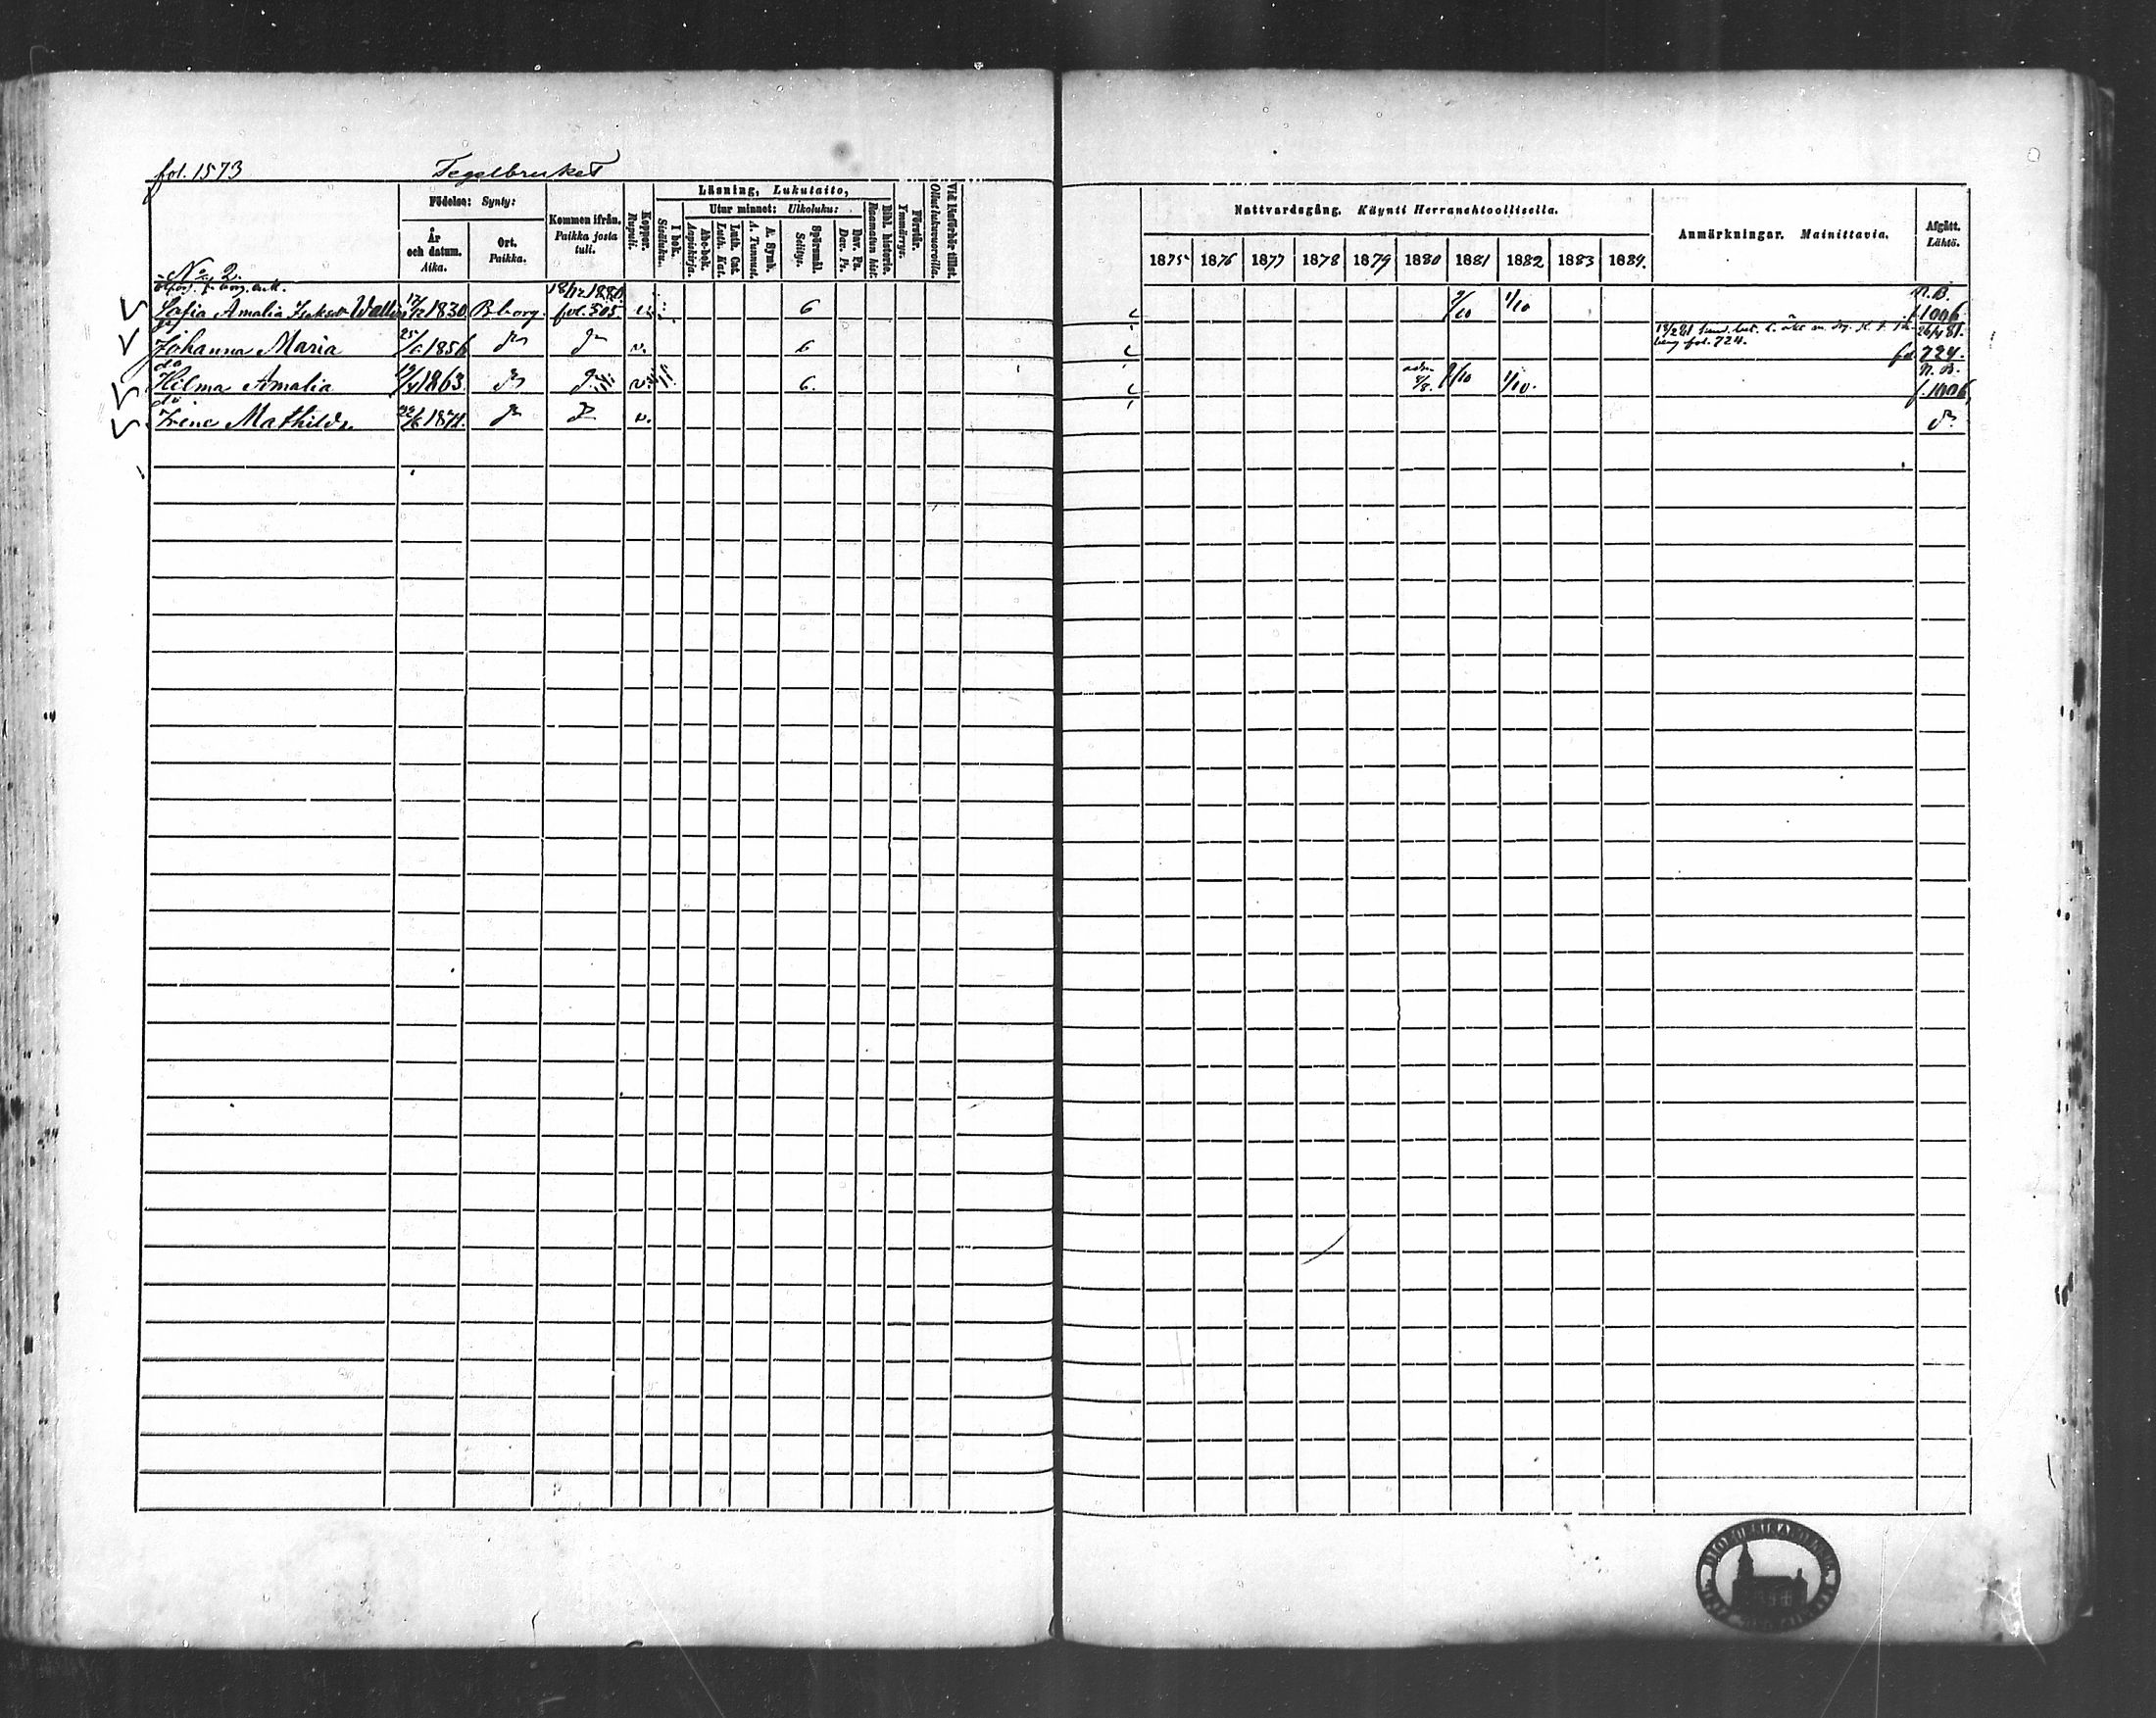 fol. 1573 Tegelbruket
Födelse: Synty:
År och datum. Aika.
Ort. Paikka.
Kommen ifrån. Paikka josta tuli.
Koppor. Rupuli.
Läsning, Lukutaito,
I bok. Sisäluku.
Utur minnet: Ulkoluku:
Abc-bok. Aapiskirja.
Luth. Cat. Luth. Kat.
A. Symb. A. Tunnust.
Spörsmål. Selitys.
Dav. Ps. Dav. Ps.
Bibl. historie. Raamatun hist.
Förstår. Ymmärrys.
Vid Katförhör tillst. Ollut lukuvuoroilla.
Nattvardsgång. Käynti Herranehtoollisella.
1875 1876 1877 1878 1879 1880 1881 1882 1883 1884.
Anmärkningar. Mainittavia.
Afgått. Lähtö.
No 2.
18/12 1880. N. B.
Sofia Amalia Wallin 1830 Bborg. fol. 505 v. 6 9/10 1/10 f. 1006
Johanna Maria 25/ 1856 do do v. 6 fol. 724. 26/4 81. fol 724.
do
Hilma Amalia 1863 do do v. 6. 8/8. 9/10 1/10. N. B. f. 1006
do
Irene Mathilda 22/6 1871. do do v. do